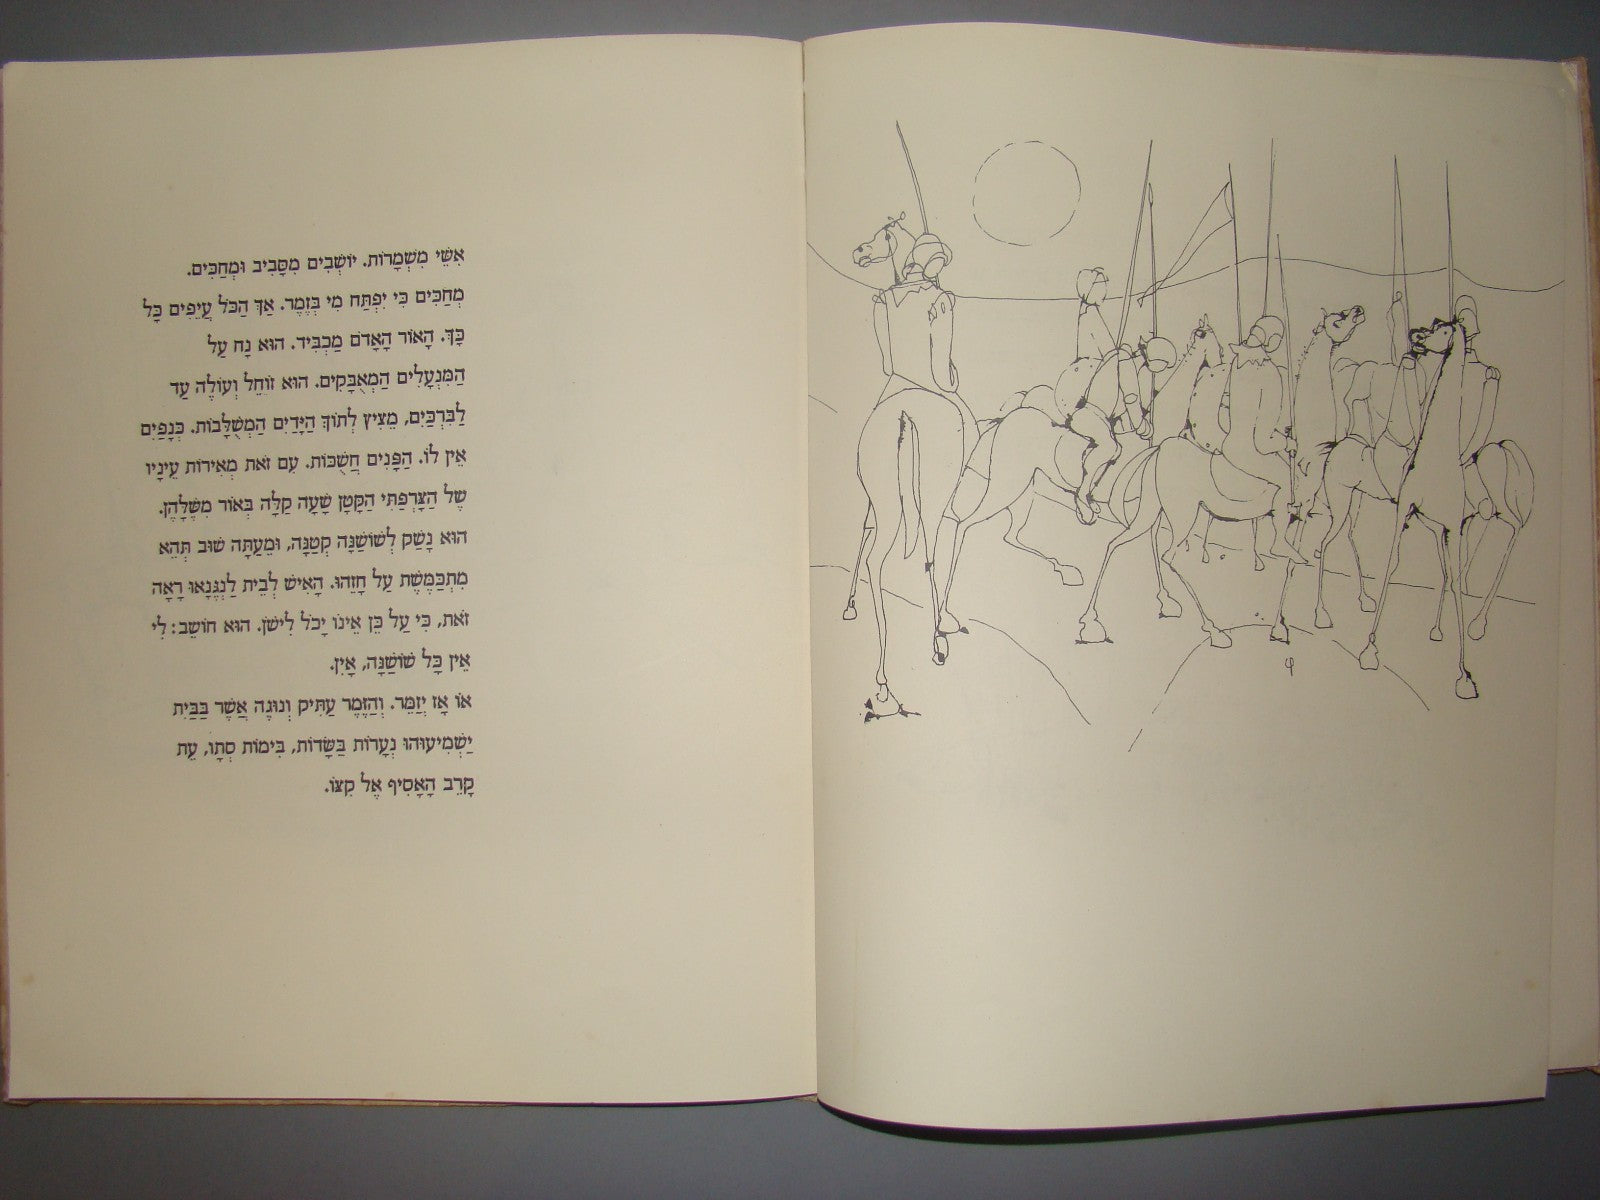 אִשֵּׁי מִשְׁמָרוֹת. יוֹשְׁבִים מִסָּבִיב וּמְחַכִּים.
מְחַכִּים כִּי יִפְתַּח מִי בְּזֶמֶר. אַךְ הַכֹּל עֲיֵפִים כָּל
כָּךְ. הָאוֹר הָאָדֹם מַכְבִּיד. הוּא נָח עַל
הַמִּנְעָלִים הַמְאֻבָּקִים. הוּא זוֹחֵל וְעוֹלֶה עַד
לַבִּרְכַּיִם, מֵצִיץ לְתוֹךְ הַיָּדַיִם הַמְשֻׁלָּבוֹת. כְּנָפַיִם
אֵין לוֹ. הַפָּנִים חֲשֻׁכּוֹת. עִם זֹאת מְאִירוֹת עֵינָיו
שֶׁל הַצָּרְפַתִּי הַקָּטָן שָׁעָה קַלָּה בְּאוֹר מִשֶּׁלָּהֶן.
הוּא נָשַׁק לְשׁוֹשַׁנָּה קְטַנָּה, וּמֵעַתָּה שׁוּב תְּהֵא
מִתְכַּמֶּשֶׁת עַל חָזֵהוּ. הָאִישׁ לְבֵית לַנְגֶנָאוּ רָאָה
זֹאת, כִּי עַל כֵּן אֵינוֹ יָכֹל לִישֹׁן. הוּא חוֹשֵׁב: לִי
אֵין כָּל שׁוֹשַׁנָּה, אָיִן.
אוֹ אָז יְזַמֵּר. וְהַזֶּמֶר עַתִּיק וְנוּגֶה אֲשֶׁר בַּבַּיִת
יַשְׁמִיעוּהוּ נְעָרוֹת בַּשָּׂדוֹת, בִּימוֹת סְתָו, עֵת
קָרֵב הָאָסִיף אֶל קִצּוֹ.